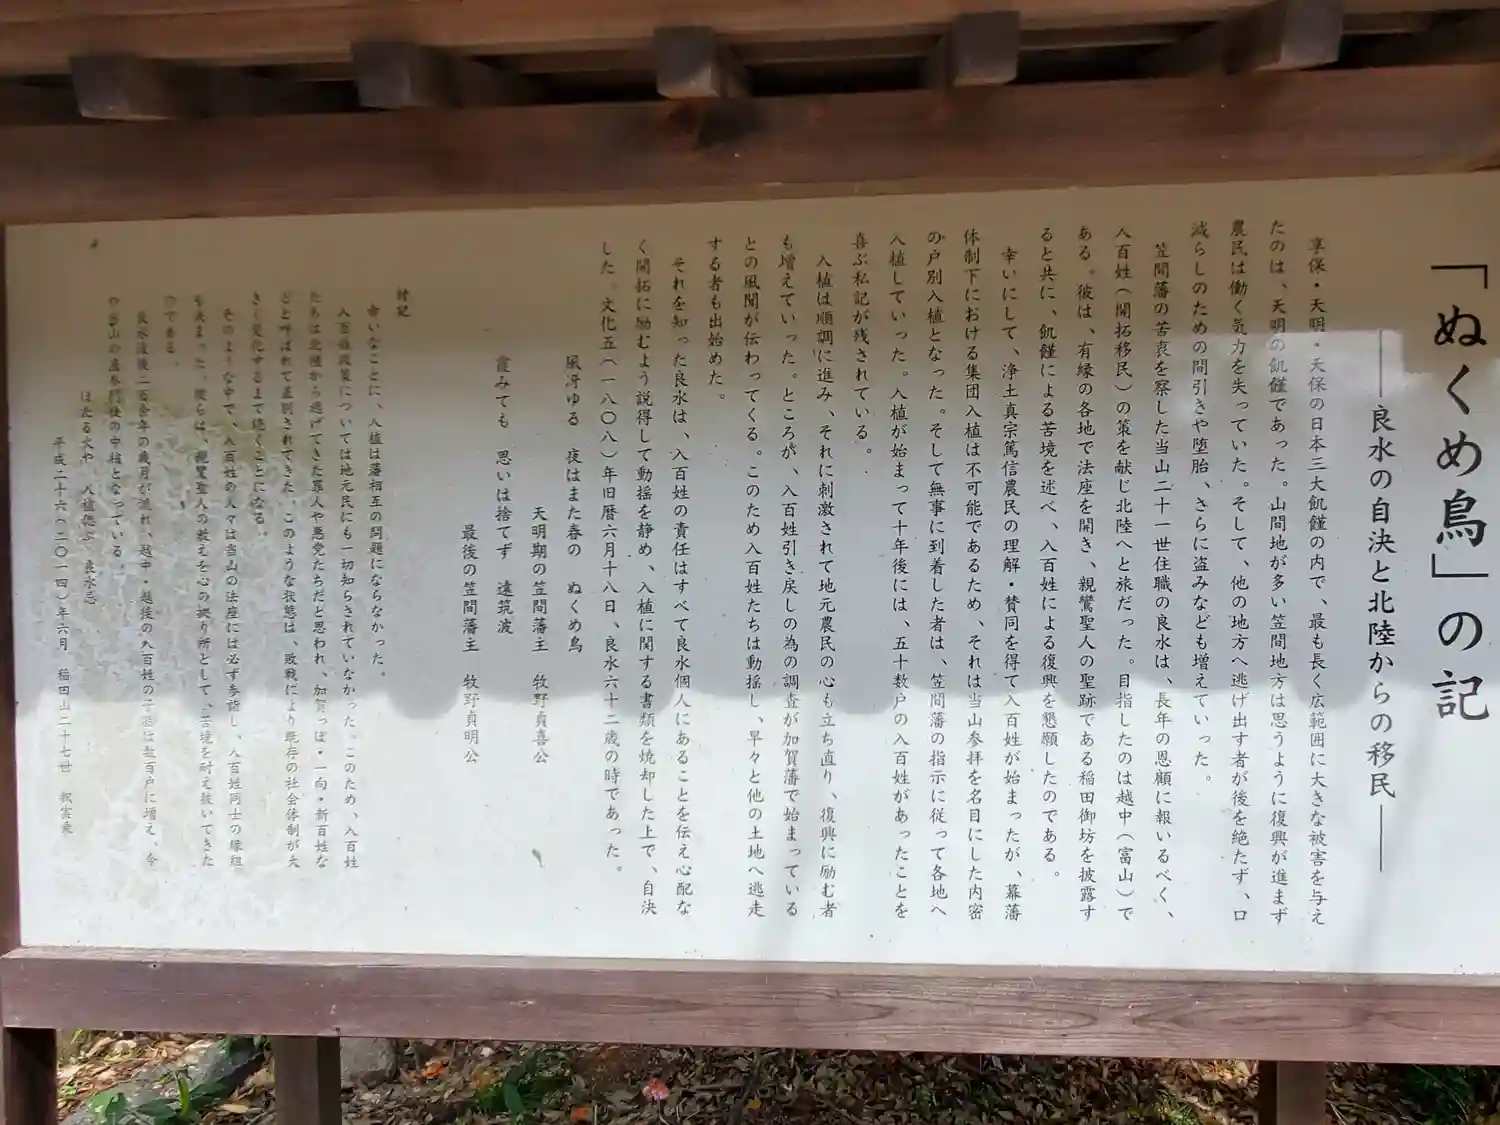 「ぬくめ鳥」の記
――良水の自決と北陸からの移民――
享保・天明・天保の日本三大飢饉の内で、最も長く広範囲に大きな被害を与え
たのは、天明の飢饉であった。山間地が多い笠間地方は思うように復興が進まず
農民は働く気力を失っていた。そして、他の地方へ逃げ出す者が後を絶たず、口
減らしのための間引きや堕胎、さらに盗みなども増えていった。
笠間藩の苦衷を察した当山二十一世住職の良水は、長年の恩顧に報いるべく、
入百姓(開拓移民)の策を献じ北陸へと旅だった。目指したのは越中(富山)で
ある。彼は、有縁の各地で法座を開き、親鸞聖人の聖跡である稲田御坊を披露す
ると共に、飢饉による苦境を述べ、入百姓による復興を懇願したのである。
幸いにして、浄土真宗篤信農民の理解・賛同を得て入百姓が始まったが、幕藩
体制下における集団入植は不可能であるため、それは当山参拝を名目にした内密
の戸別入植となった。そして無事に到着した者は、笠間藩の指示に従って各地へ
入植していった。入植が始まって十年後には、五十数戸の入百姓があったことを
喜ぶ私記が残されている。
入植は順調に進み、それに刺激されて地元農民の心も立ち直り、復興に励む者
も増えていった。ところが、入百姓引き戻しの為の調査が加賀藩で始まっている
との風聞が伝わってくる。このため入百姓たちは動揺し、早々と他の土地へ逃走
する者も出始めた。
それを知った良水は、入百姓の責任はすべて良水個人にあることを伝え心配な
く開拓に励むよう説得して動揺を静め、入植に関する書類を焼却した上で、自決
した。文化五(一八〇八)年旧暦六月十八日、良水六十二歳の時であった。
風冴ゆる 夜はまた春の ぬくめ鳥
天明期の笠間藩主 牧野貞喜公
霞みても 思いは捨てず 遠筑波
最後の笠間藩主 牧野貞明公
付記
幸いなことに、入植は藩相互の問題にならなかった。
入百姓政策については地元民にも一切知らされていなかった。このため、入百姓
たちは北陸から逃げてきた罪人や悪党たちだと思われ、加賀っぽ・一向・新百姓な
どと呼ばれて差別されてきた。このような状態は、敗戦により既存の社会体制が大
きく変化するまで続くことになる。
そのような中で、入百姓の人々は当山の法座には必ず参詣し、入百姓同士の縁組
も決まった。彼らは、親鸞聖人の教えを心の拠り所として、苦境を耐え抜いてきた
のである。
良水没後二百余年の歳月が流れ、越中・越後の入百姓の子孫は数百戸に増え、今
や当山の直参門徒の中核となっている。
ほたる火や 入植偲ぶ 良水忌
平成二十六(二〇一四)年六月 稲田山二十七世